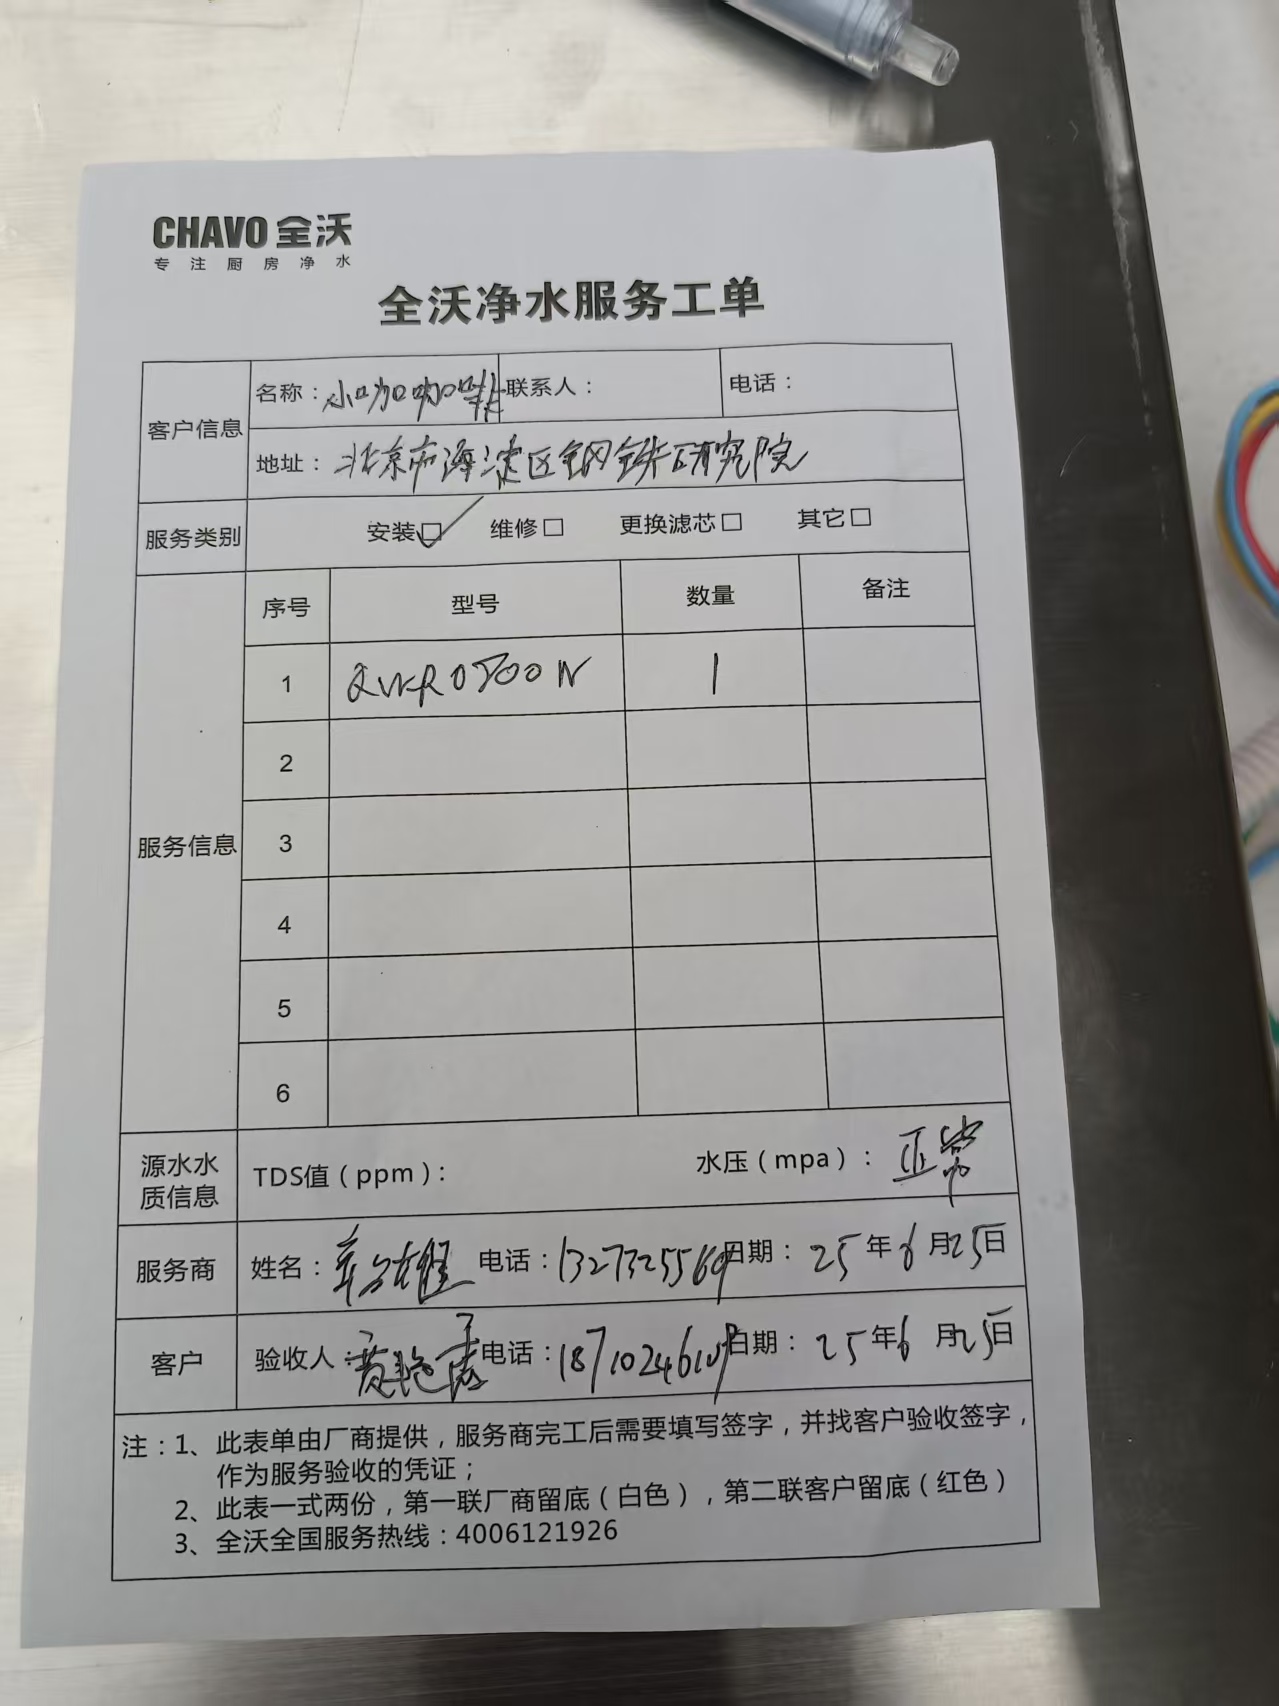 CHAVO 全沃
专注厨房净水
全沃净水服务工单
客户信息 名称：小咖咖啡 联系人： 电话：
地址：北京市海淀区钢铁研究院
服务类别 安装☑ 维修□ 更换滤芯□ 其它□
服务信息 序号 型号 数量 备注
1 1
2
3
4
5
6
源水水质信息 TDS值（ppm）： 水压（mpa）：正常
服务商 姓名： 电话：13273255609 日期：25年6月25日
客户 验收人： 电话： 日期：25年6月25日
注：1、此表单由厂商提供，服务商完工后需要填写签字，并找客户验收签字，
作为服务验收的凭证；
2、此表一式两份，第一联厂商留底（白色），第二联客户留底（红色）
3、全沃全国服务热线：4006121926